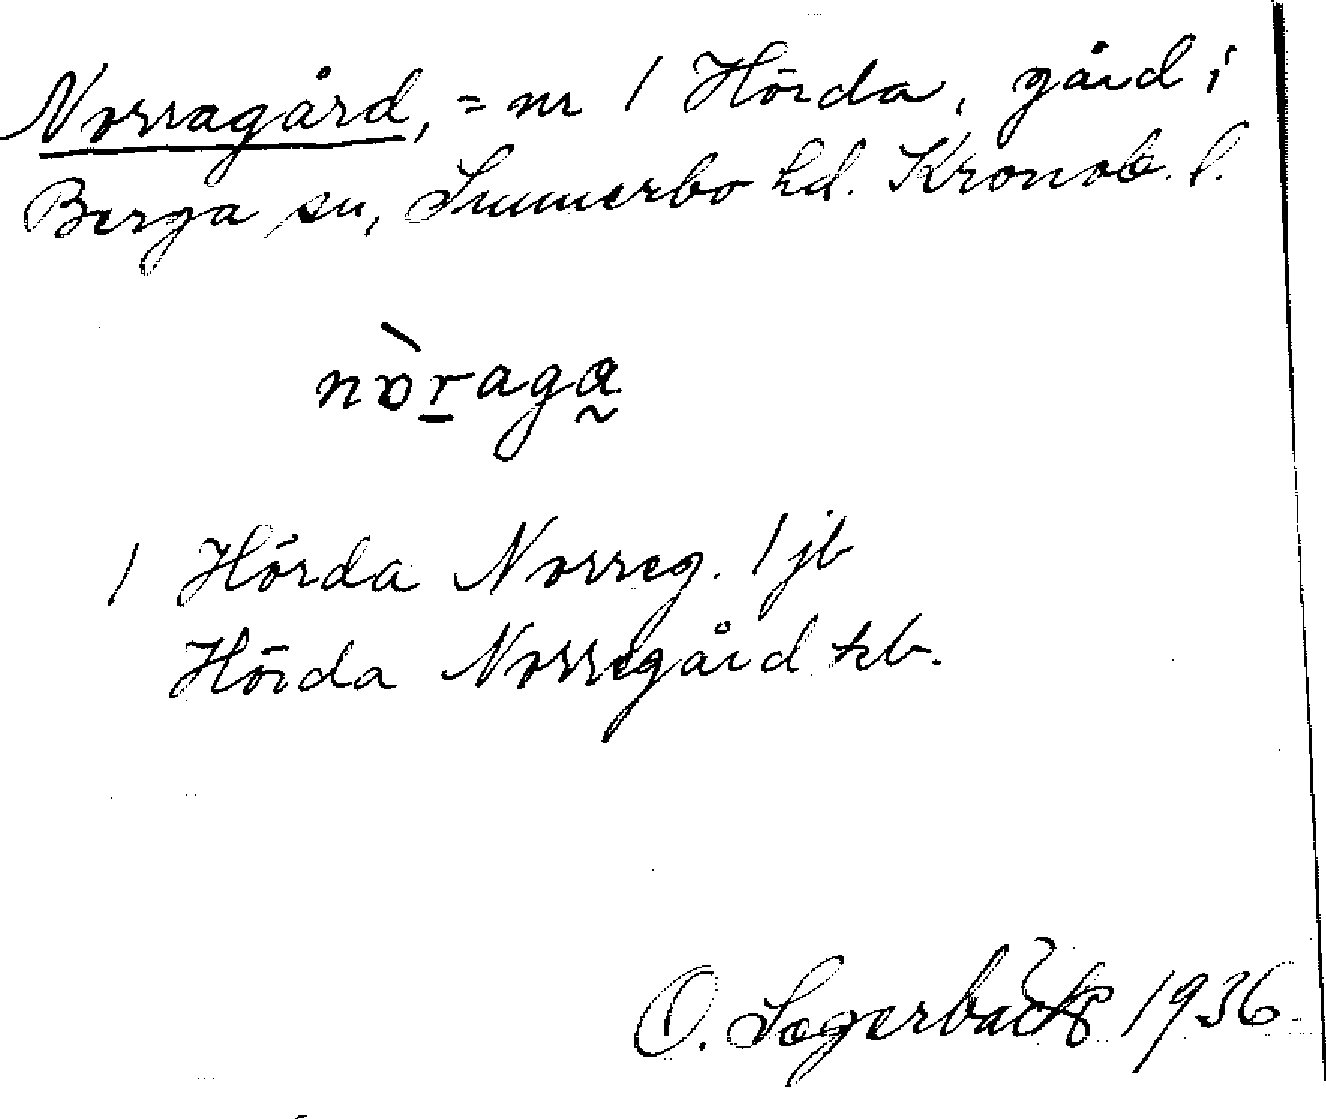 Norragård, = nr 1 Hörda, gård i
Berga sn, Sunnerbo hd. Kronob. l.
nòraga
1 Hörda Norreg. 1 jb
Hörda Norregård tkb.
O. Sagerbäck 1936